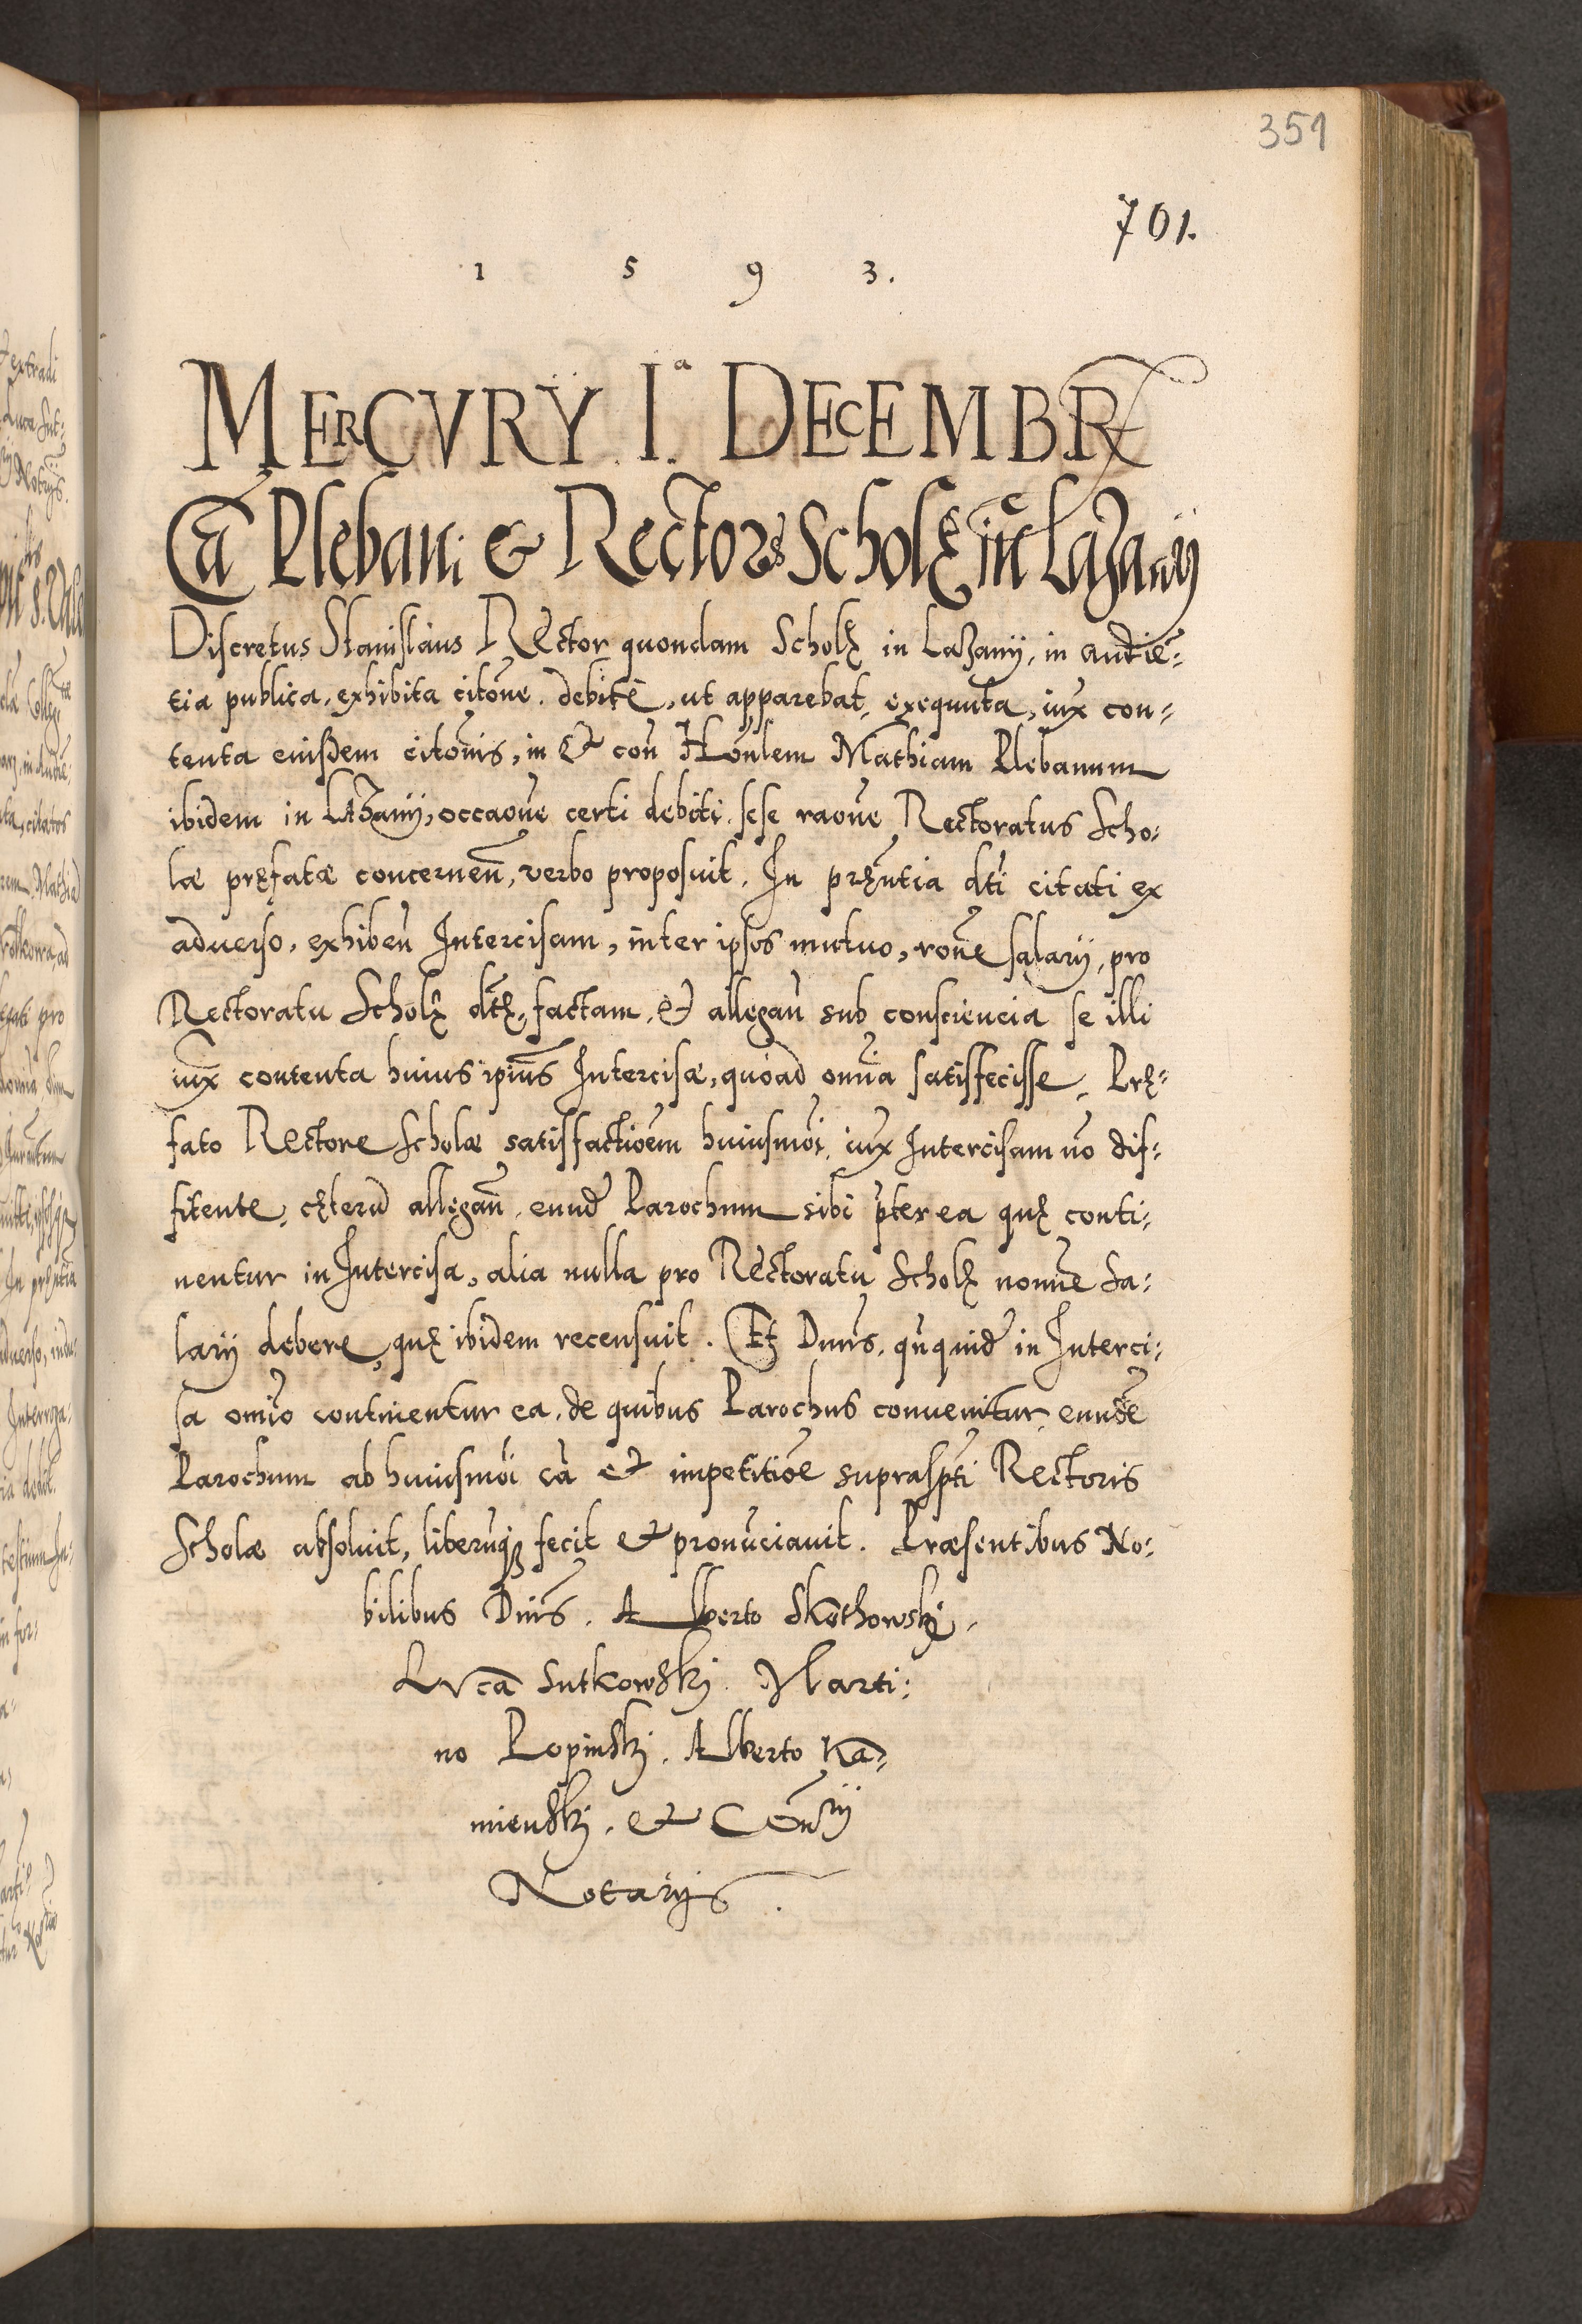 351
701.
1 5 9 3.
MERCVRY I.a DECEMBR
Cã Plebani & Rectoris Scholę in Lazanÿ
Discretus Stanislaus Rector quondam Scholę in Lażany, in audiē-
tia publica, exhibita citõne debite, ut apparebat, exequuta, iux con-
tenta eiusdem citõnis, in & coñ Hoñlem Mathiam Plebanum
ibidem in Lażany, occaõne certi debiti sese raõne Rectoratus Scho-
læ pręfatæ concerneñ, verbo proposuit. In pręntia dti citati ex
aduerso, exhibeñ Intercisam, inter ipsos mutuo, rõne salarÿ, pro
Rectoratu Scholę dtę, factam, & allegañ sub consciencia se illi
iux contenta huius ip̃ius Intercisæ, quoad om̃ia satisfecisse. Prę-
fato Rectore Scholæ satisfactiõem huiusmõi iux Intercisam nõ dif-
fitente, cęterũ allegañ eund̃ Parochum sibi p̃ter ea quę conti-
nentur in Intercisa, alia nulla pro Rectoratu Scholę nom̃ne sa-
larÿ debere, quę ibidem recensuit. Et Dnus, quñquid̃ in Interci-
sa om̃io continentur ea, de quibus Parochus conuenitur, eundẽ
Parochum ab huiusmõi cã et impetitiõe suprasp̃ti Rectoris
Scholæ absoluit, liberũq; fecit & pronũciauit. Præsentibus No-
bilibus Dnis. Alberto Skothowskj.
Luca Sutkowskj. Marti-
no Lopinskj. Alberto Ka-
mienskj. et Consrÿ
Notarÿs.